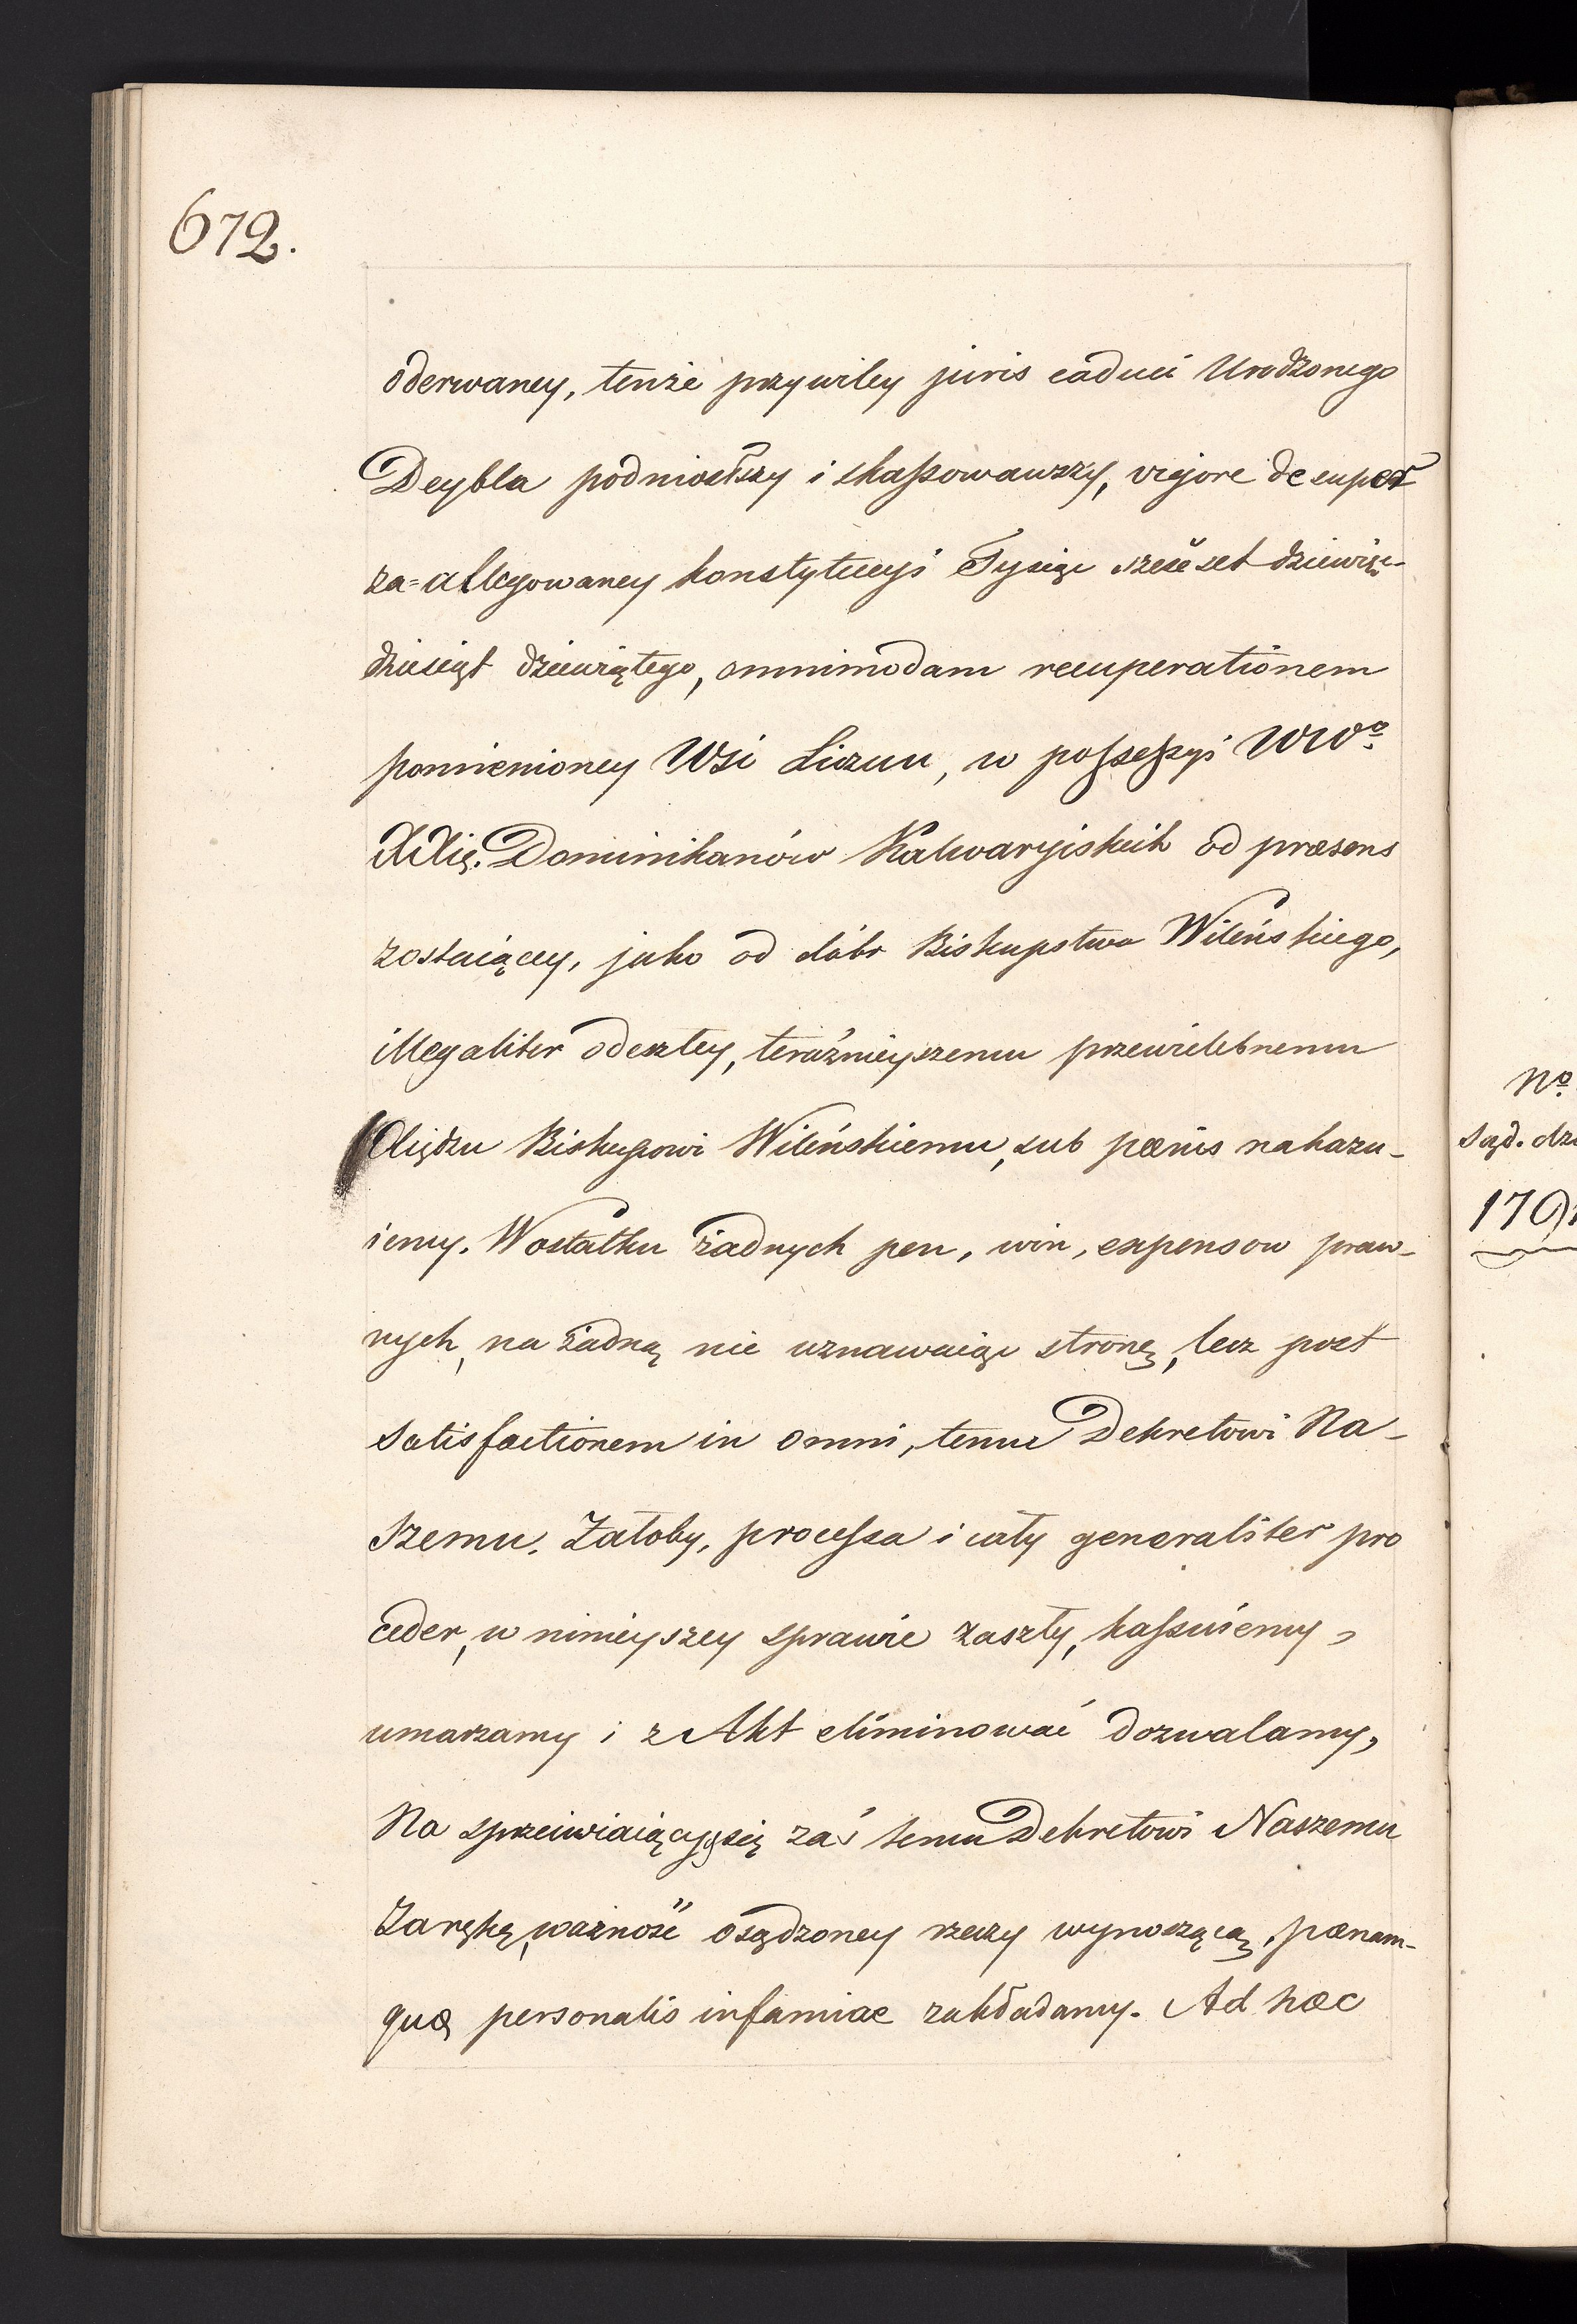 672.
oderwaney, tenże przywiley juris caduci Urodzonego
Deybla podniosłszy i skassowawszy, vigore de super
za=allegowaney konstytucyi Tysiąc sześćset dziewięć-
dziesiąt dziewiątego, omnimodam recuperationem
pomienioney Wsi Liczun, w possessyi WWo.
XXię. Dominikanów Kalwaryiskich od præsens
zostaiącey, jako od dóbr Biskupstwa Wileńskiego,
illegaliter odeszłey, teraźnieyszemu przewielebnemu
Xiędzu Biskupowi Wileńskiemu, sub pœnis nakazu-
iemy. Wostatku żadnych pen, win, expensow praw-
nych, na żadną nie uznawaiąc stronę, lecz post
satisfactionem in omni, temu Dekretowi Na-
szemu. Żałoby, processa i cały generaliter pro
ceder, w ninieyszey sprawie zaszły, kassuiemy,
umarzamy i z Akt eliminować dozwalamy,
Na sprzeiwiaiących się zaś temu Dekretowi Naszemu
Zarękę, ważność osądzoney rzeczy wynoszącą, pœnam-
quæ personalis infamiae zakładamy. Ad hæc
No.
Sąd. dzi
179